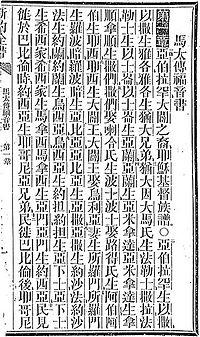 馬太傳福音書
第一章亞伯拉罕大闢之裔耶穌基督族譜○亞伯拉罕生以撒
以撒生雅各雅各生猶大兄弟猶大與大馬氏生法勒士撒拉法
勒士生以士崙以士崙生亞蘭亞蘭生亞米拿達亞米拿達生拿
順拿順生撒門撒門娶喇合氏生波士波士娶路得氏生阿伯阿
伯生耶西耶西生大闢王大闢王娶烏利亞妻生所羅門所羅門
生羅波暗羅波暗生亞比亞亞比亞生亞撒亞撒生約沙法約沙
法生約蘭約蘭生烏西亞烏西亞生約擔約擔生亞下士亞下士
生希西家希西家生馬拿西馬拿西生亞門亞門生約西亞民見
徙於巴比倫時約西亞生耶哥尼亞兄弟民徙巴比倫後耶哥尼
新約全書
馬太傳福音書 第一章